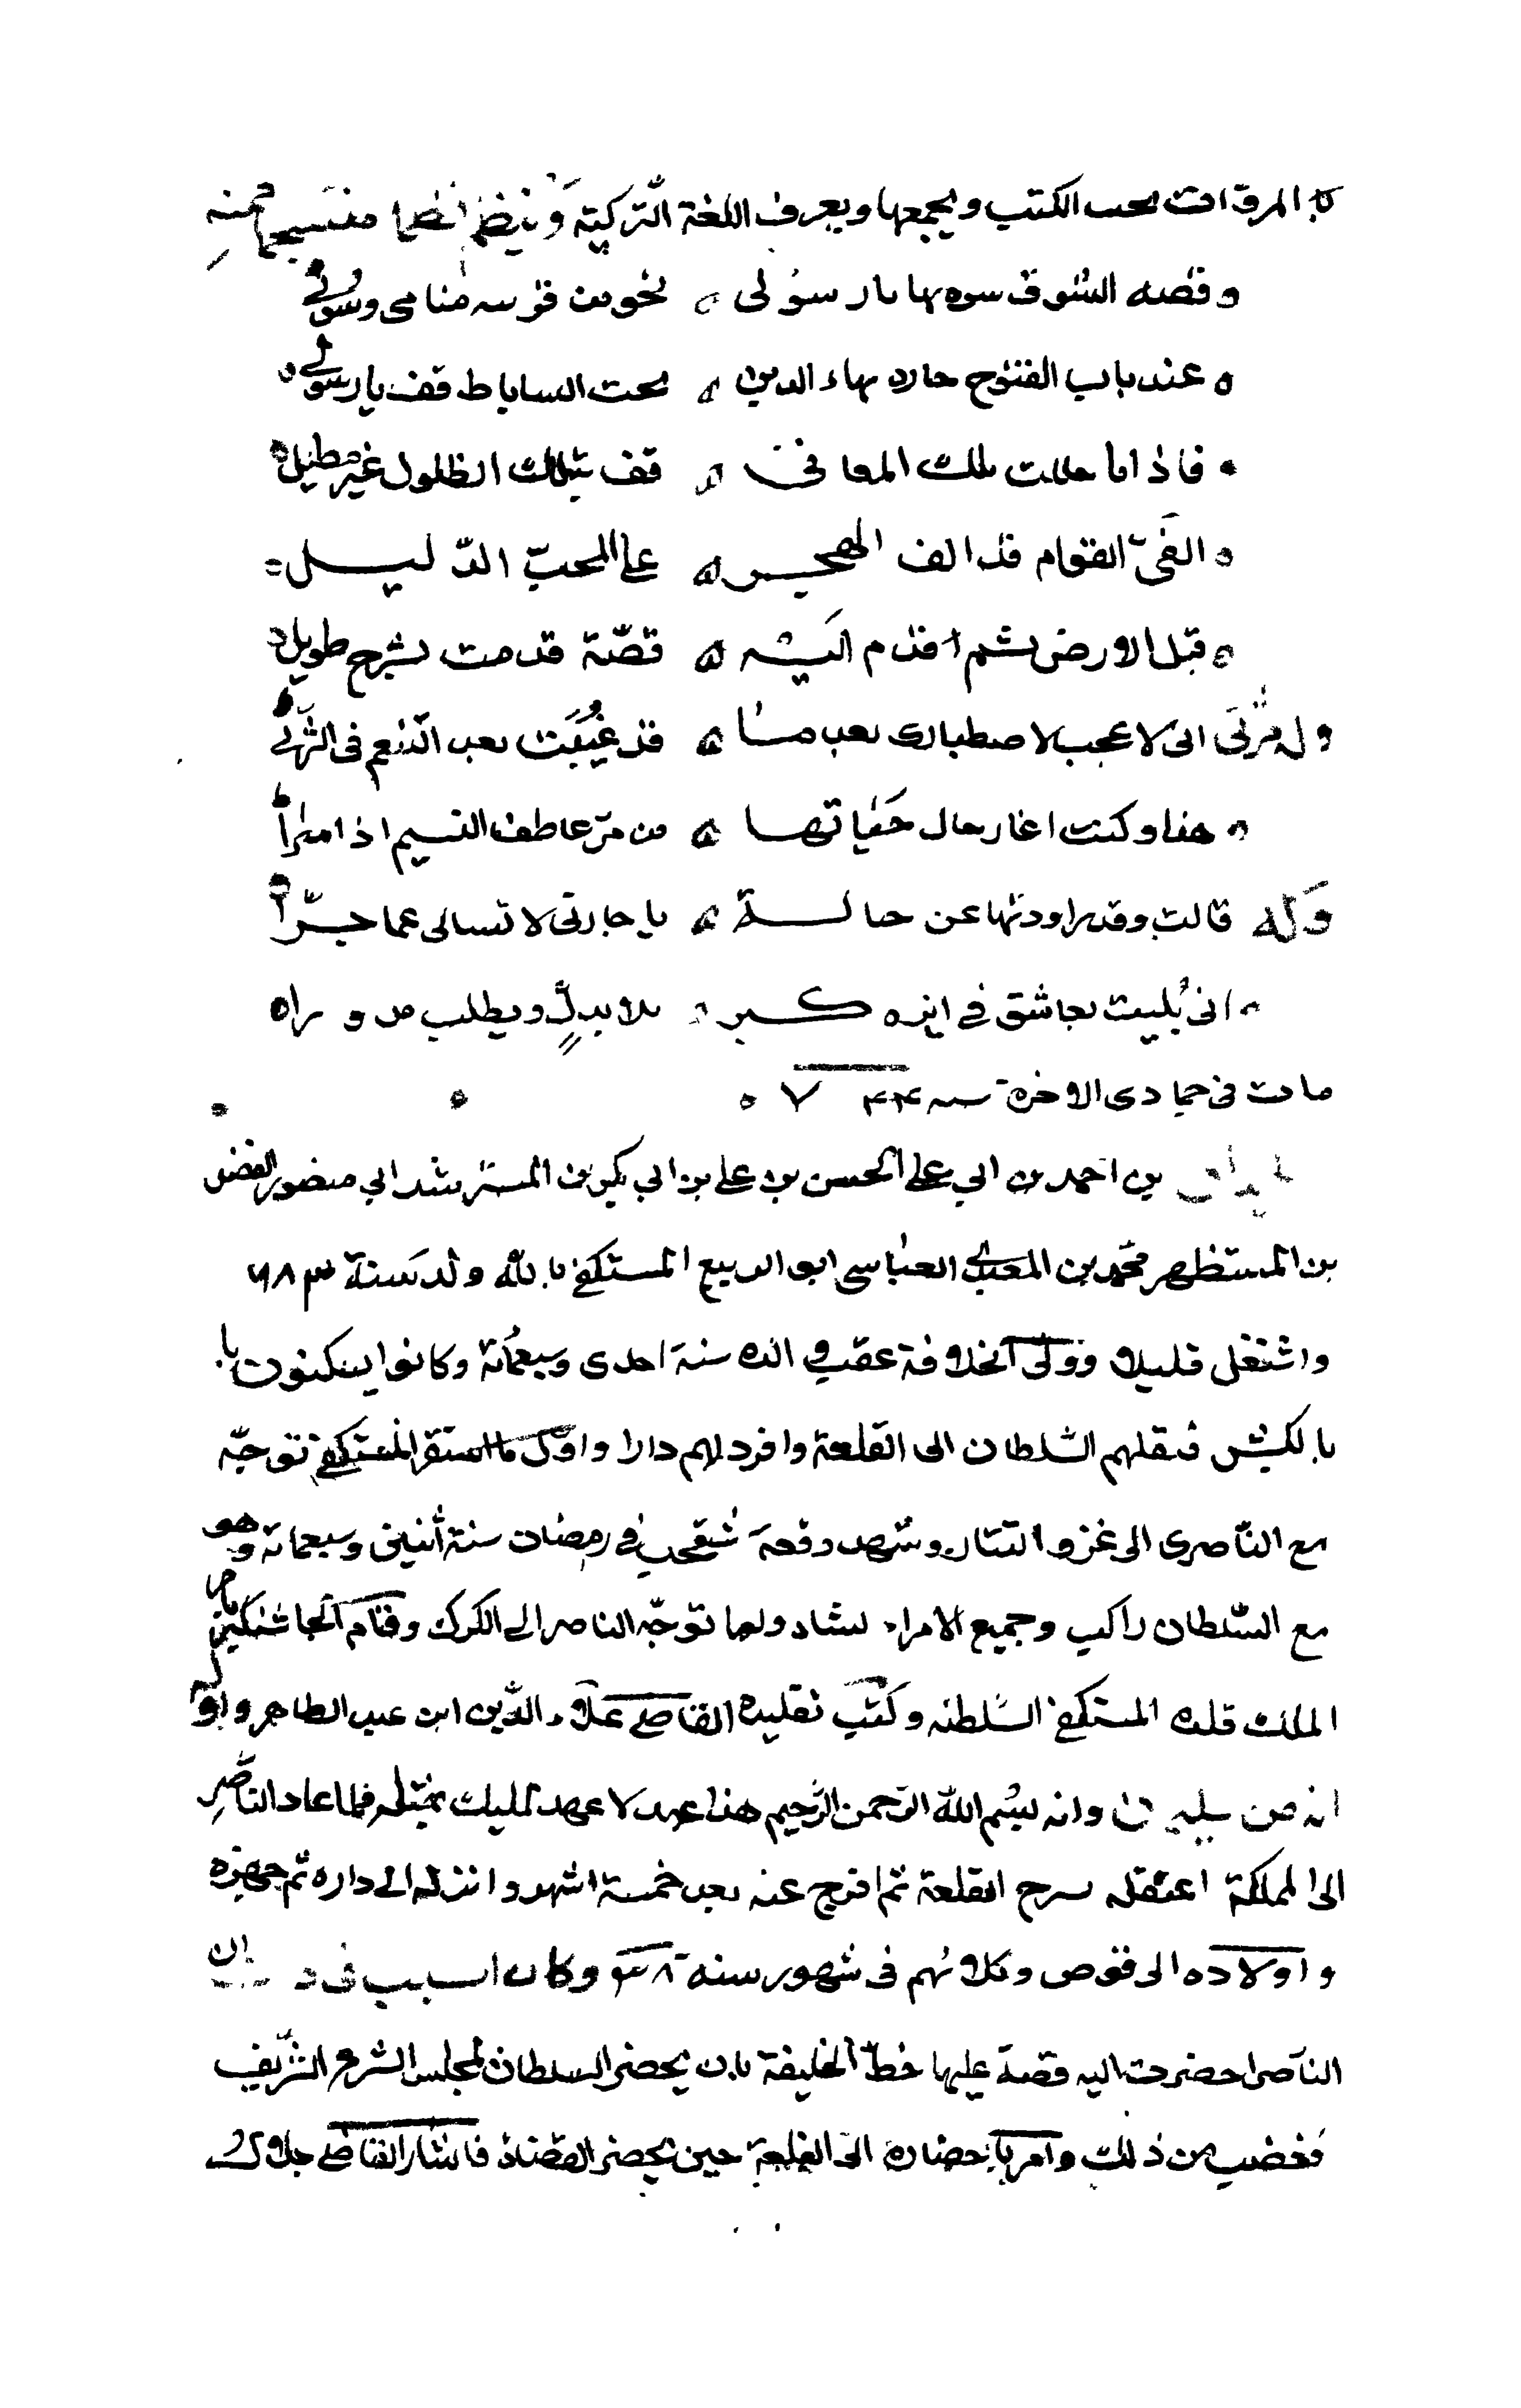 بالمرقات يحب الكتب ويجمعها ويعرف اللغة التركية وينظم نظما منسجما فمنه
وقصه الشوق سوه بها يا رسولى نحو من قربه منامى وسولى
عند باب الفتوح حارة بهاء الدين تحت الساباط قف يا رسولى
فاذا ما حللت تلك المعانى قف بتلك الطلول غير مطيل
القوام قد الف الهجر على المحب الدليل
قبل الارض ثم اقدم اليه قصة قدمت بشرح طويل
وله انى لا عجب لاصطبارى بعدما قد غيبت بعد التنعم فى الثرى
هذا وكنت اغار حال حياتها من مر عاطف النسيم اذا سرا
وله قالت وقد راودتها عن حالة يا جارتى لا تسالى عما جرا
انى بليت بعاشق فى ايره كبر بلا بدل ويطلب من ورا
مات فى جمادى الاخرة سنة ٧٤٤
بن احمد بن ابي علي الحسن بن علي بن ابي بكر بن المسترشد ابي منصور الفضل
بن المستظهر محمد بن المقتدي العباسى ابو الربيع المستكفى بالله ولد سنة ٦٨٣
واشتغل قليلا وولى الخلافة عقب والده سنة احدى وسبعمائة وكانوا يسكنون با
بالكبش فنقلهم السلطان الى القلعة وافرد لهم دارا واول ما استقر المستكفى توجه
مع الناصرى الى غزو التتار وشهد وقعة شقحب في رمضان سنة اثنين وسبعمائة وهو
مع السلطان راكب وجميع الامراء مشاة ولما توجه الناصر الى الكرك وقام الجاشنكير بامر
الملك قلده المستكفى السلطنه وكتب تقليده القاضي علاء الدين ابن عبد الطاهر واوله
انه من سليمان وانه بسم الله الرحمن الرحيم هذا عهد لا عهد لمليك بمثله فلما عاد الناصر
الى المملكة اعتقله ببرج القلعة ثم افرج عنه بعد خمسة اشهر وانزله الى داره ثم جهزه
واولاده الى قوص وكلائهم فى شهور سنة ٧٣٨ وكان السبب فى ذلك ان
الناصر احضرت اليه قصة عليها خط الخليفة بان يحضر السلطان لمجلس الشرع الشريف
فغضب من ذلك وامر باحضاره الى القلعة حين يحضر القضاة فاشار القاضي جلال